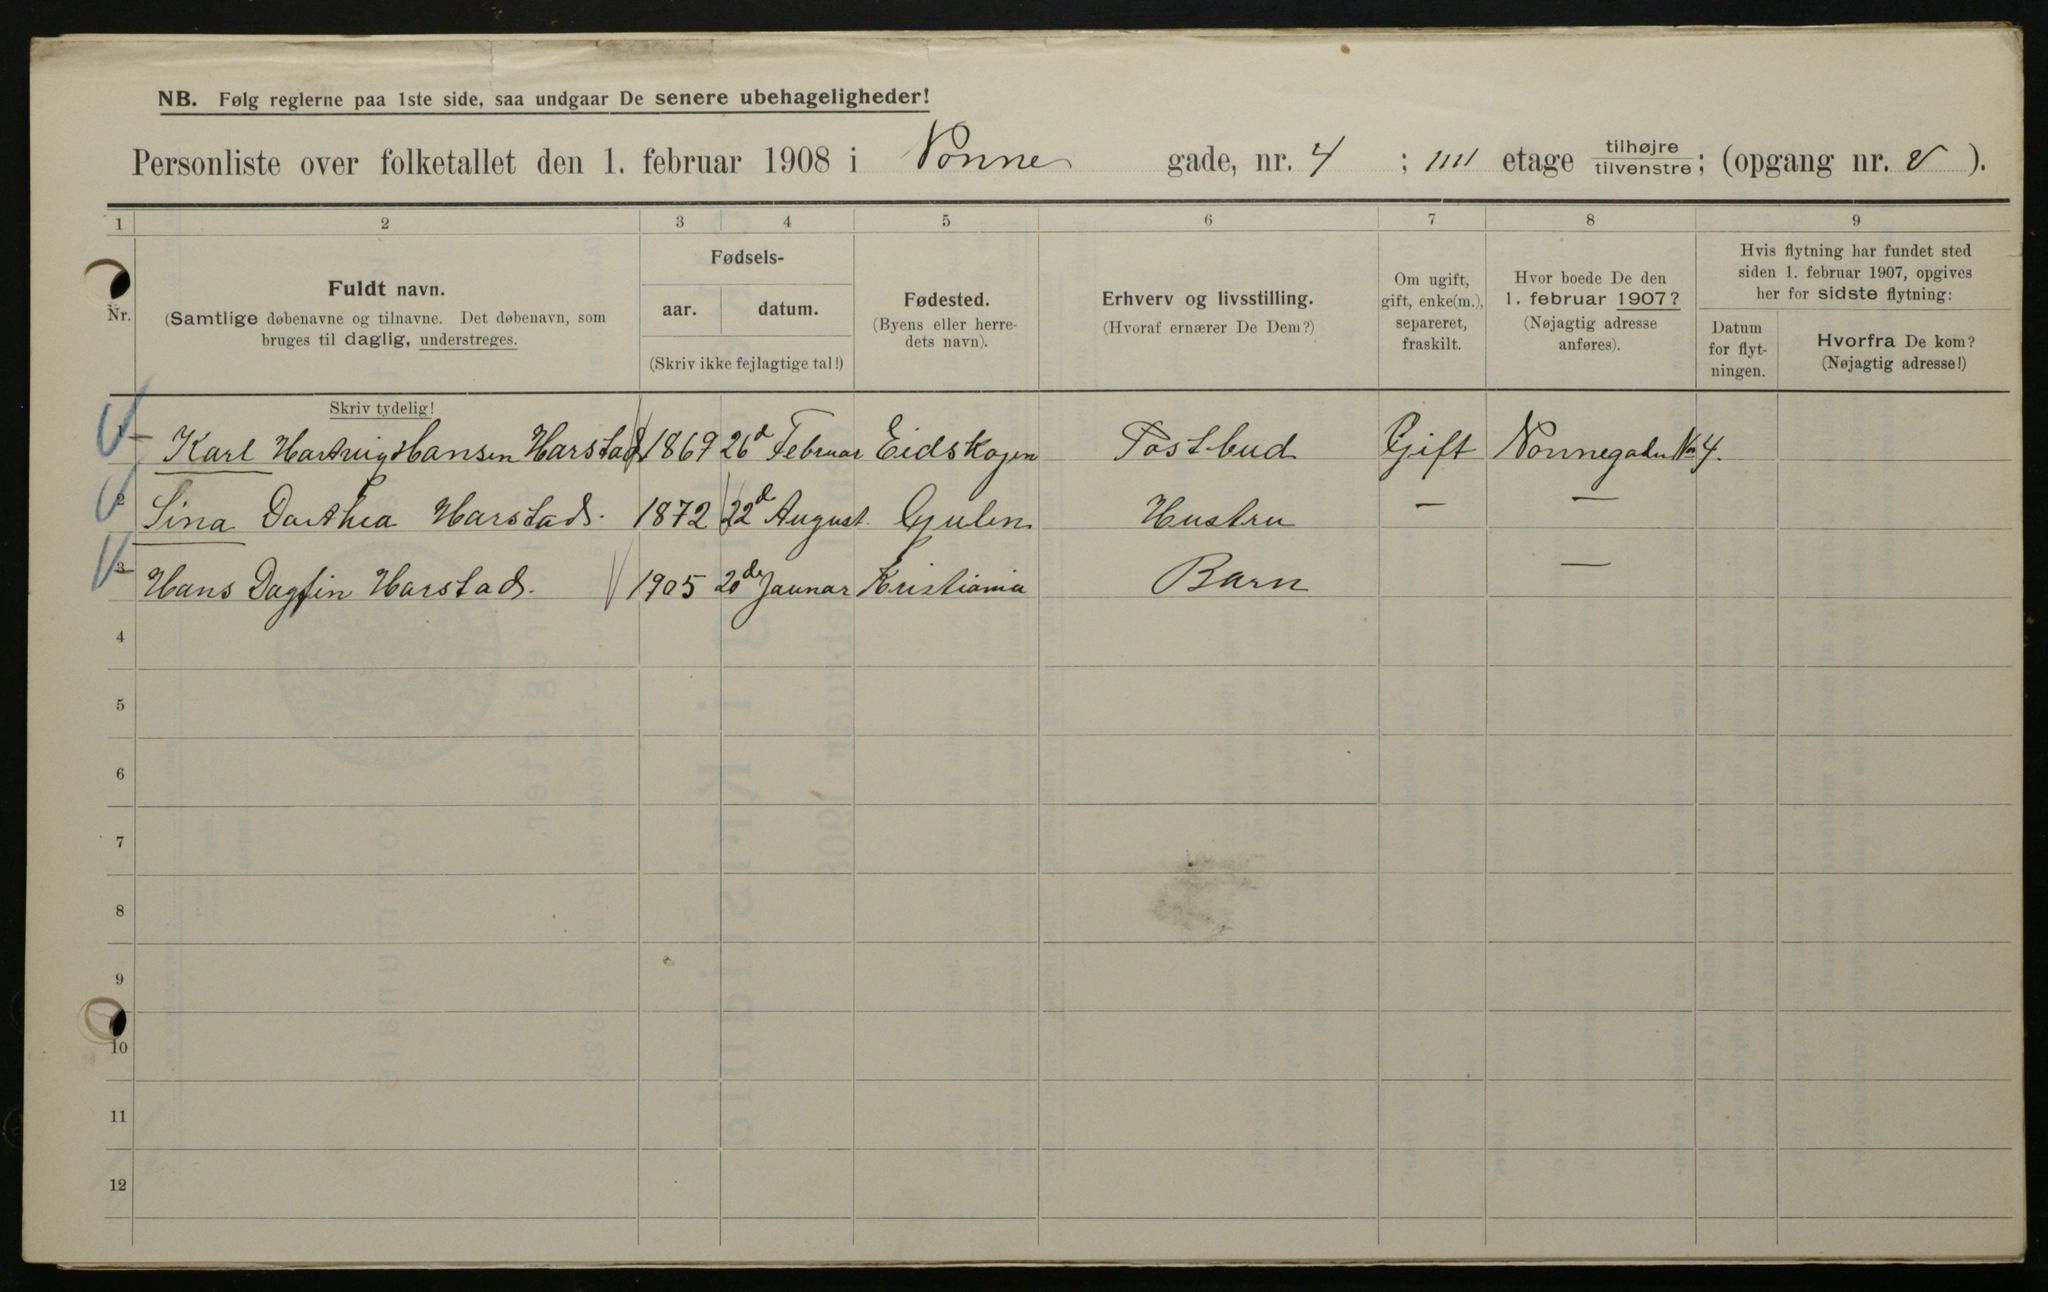 NB. Følg reglerne paa 1ste side, saa undgaar De senere ubehageligheder!
Personliste over folketallet den 1. februar 1908 i Nonne gade, nr. 4 ; IIII etage tilhøjre tilvenstre; (opgang nr. V ).
1 2 3 4 5 6 7 8 9
Nr.
Fuldt navn.
(Samtlige døbenavne og tilnavne. Det døbenavn, som
bruges til daglig, understreges.
Skriv tydelig!
Fødsels-
aar. datum.
(Skriv ikke fejlagtige tal!)
Fødested.
(Byens eller herre-
dets navn).
Erhverv og livsstilling.
(Hvoraf ernærer De Dem?)
Om ugift,
gift, enke(m.),
separeret,
fraskilt.
Hvor boede De den
1. februar 1907?
(Nøjagtig adresse
anføres).
Hvis flytning har fundet sted
siden 1. februar 1907, opgives
her for sidste flytning:
Datum
for flyt-
ningen.
Hvorfra De kom?
(Nøjagtig adresse!)
1 Karl Hartvig Hansen Harstad 1869 26d Februar Eidskogen Postbud Gift Nonnegaden No 4.
2 Sina Dorthea Harstad. 1872 22d August. Gulen Hustru — —
3 Hans Dagfin Harstad. 1905 20de Januar Kristiania Barn —
4
5
6
7
8
9
10
11
12